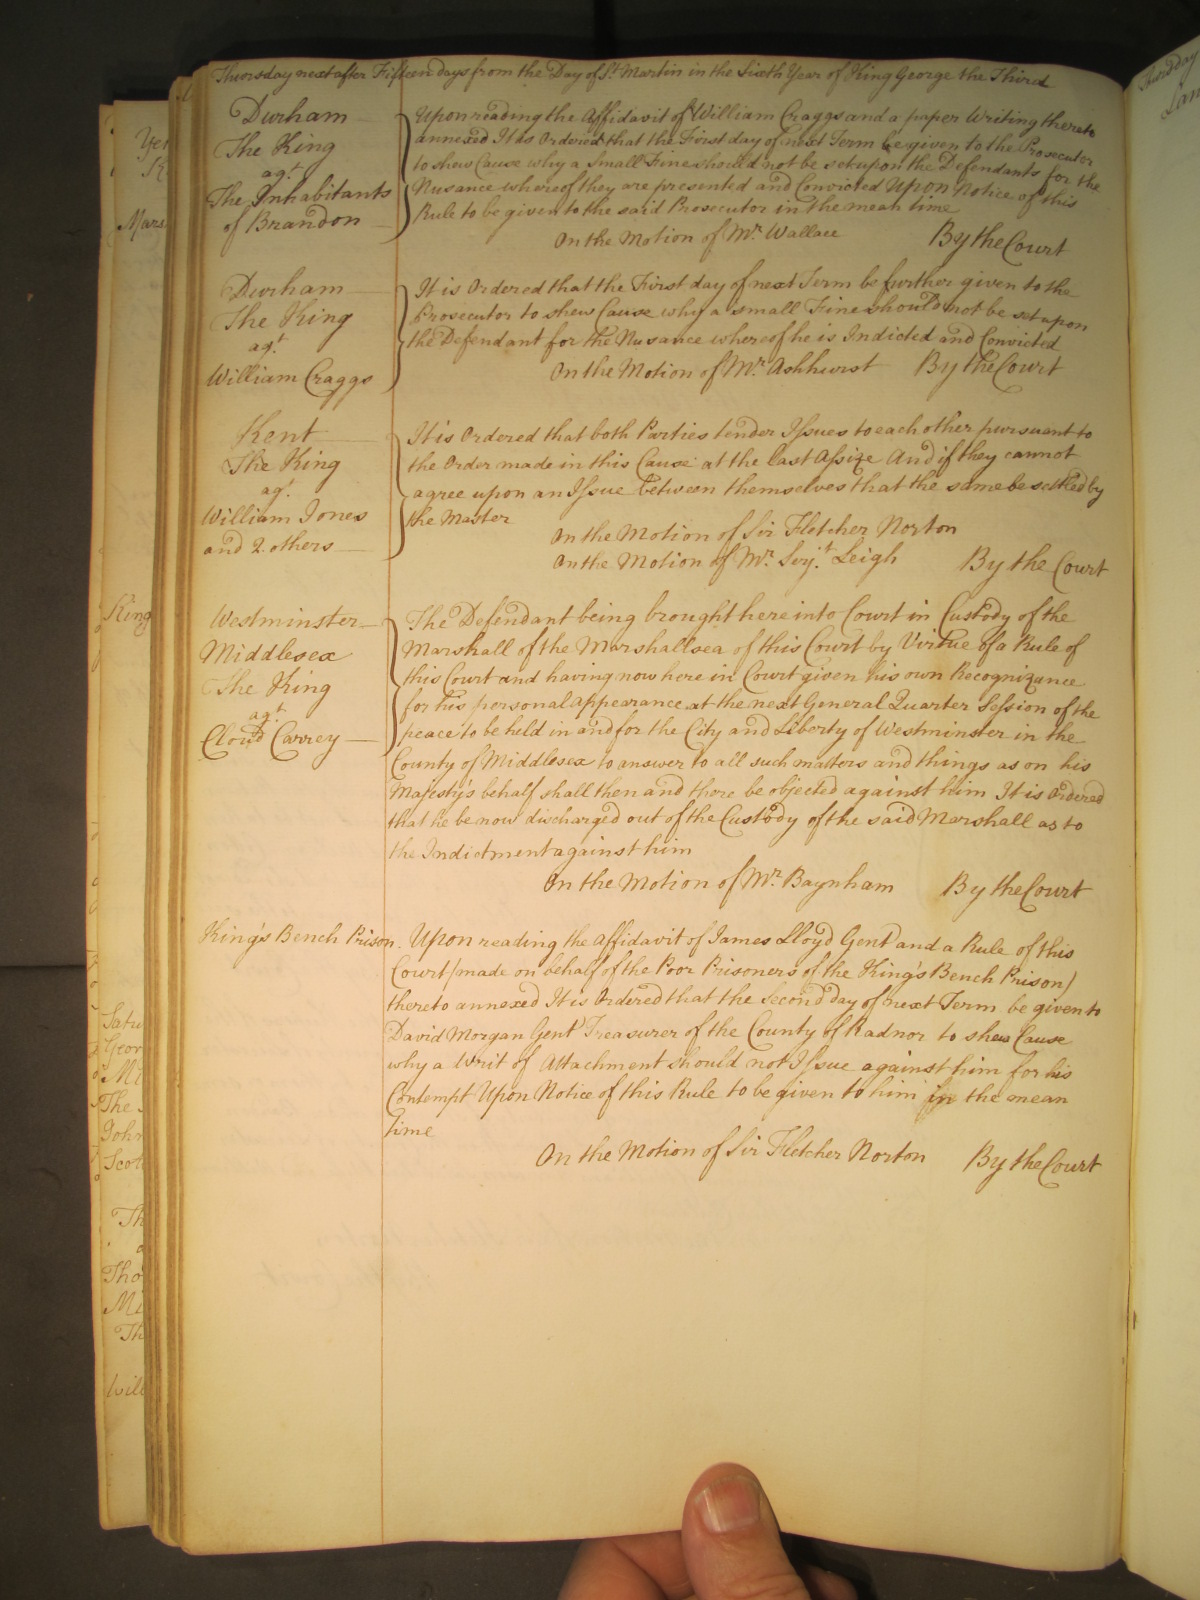 Thursday next after Fifteen days from the Day of St. Martin in the Sixth Year of King George the Third
Durham
The King
agt.
The Inhabitants
of Brandon
Upon reading the Affidavit of William Craggs and a paper Writing thereto
annexed It is Ordered that the First day of next Term be given to the Prosecutor
to shew Cause why a Small Fine should not be set upon the Defendants for the
Nusance whereof they are presented and Convicted Upon Notice of this
Rule to be given to the said Prosecutor in the mean time
On the Motion of Mr. Wallace By the Court
Durham
The King
agt.
William Craggs
It is Ordered that the First day of next Term be further given to the
Prosecutor to shew Cause why a small Fine should not be set upon
the Defendant for the Nusance whereof he is Indicted and Convicted
On the Motion of Mr. Ashhurst By the Court
Kent
The King
agt.
William Jones
and 2 others
It is Ordered that both Parties tender Issues to each other pursuant to
the Order made in this Cause at the last Assize And if they cannot
agree upon an Issue between themselves that the same be settled by
the Master
On the Motion of Sir Fletcher Norton
On the Motion of Mr. Serjt. Leigh By the Court
Westminster
Middlesex
The King
agt.
Cloud Carrey
The Defendant being brought here into Court in Custody of the
Marshall of the Marshallsea of this Court by Virtue of a Rule of
this Court and having now here in Court given his own Recognizance
for his personal appearance at the next General Quarter Session of the
peace to be held in and for the City and Liberty of Westminster in the
County of Middlesex to answer to all such matters and things as on his
Majesty's behalf shall then and there be objected against him It is Ordered
that he be now discharged out of the Custody of the said Marshall as to
the Indictment against him
On the Motion of Mr. Baynham By the Court
King's Bench Prison. Upon reading the Affidavit of James Lloyd Gent and a Rule of this
Court (made on behalf of the Poor Prisoners of the King's Bench Prison)
thereto annexed It is Ordered that the Second day of next Term be given to
David Morgan Gent Treasurer of the County of Radnor to shew Cause
why a Writ of Attachment should not Issue against him for his
Contempt Upon Notice of this Rule to be given to him in the mean
time
On the Motion of Sir Fletcher Norton By the Court